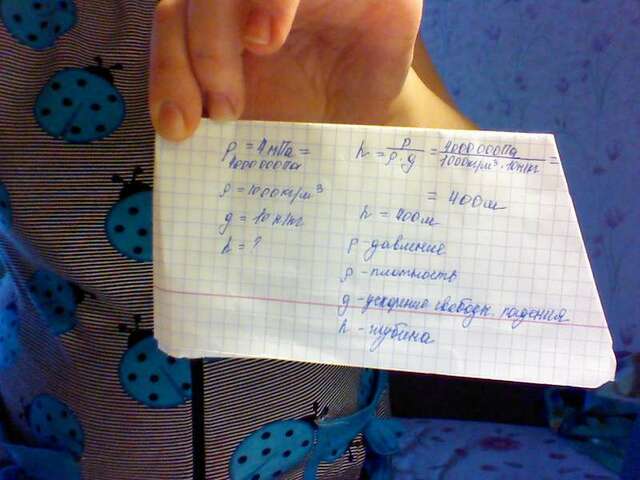 P = 4 мПа =
4000000Па
ρ = 1000кг/м³
g = 10 н/кг
h = ?
h = P / ρ · g = 4000000Па / 1000кг/м³ · 10н/кг =
= 400м
h = 400м
P - давление
ρ - плотность
g - ускорение свободн. падения
h - глубина